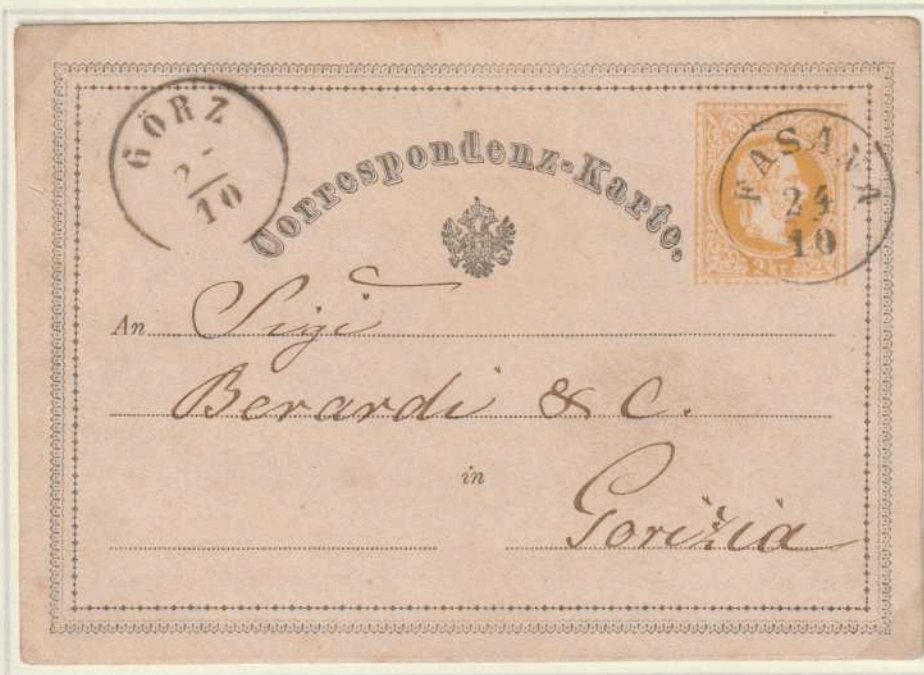 GÖRZ
10
Correspondenz-Karte.
FASANA
24
10
2 KR.
An Sigi
Berardi & C.
in
Gorizia